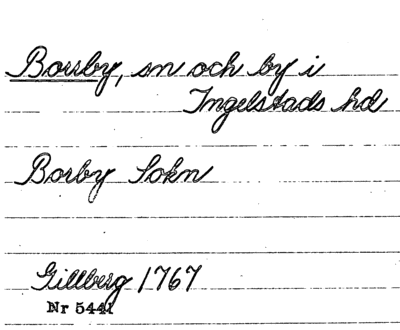 Borrby, sn och by i
Ingelstads hd
Borby Sokn
Gillberg 1767
Nr 5441